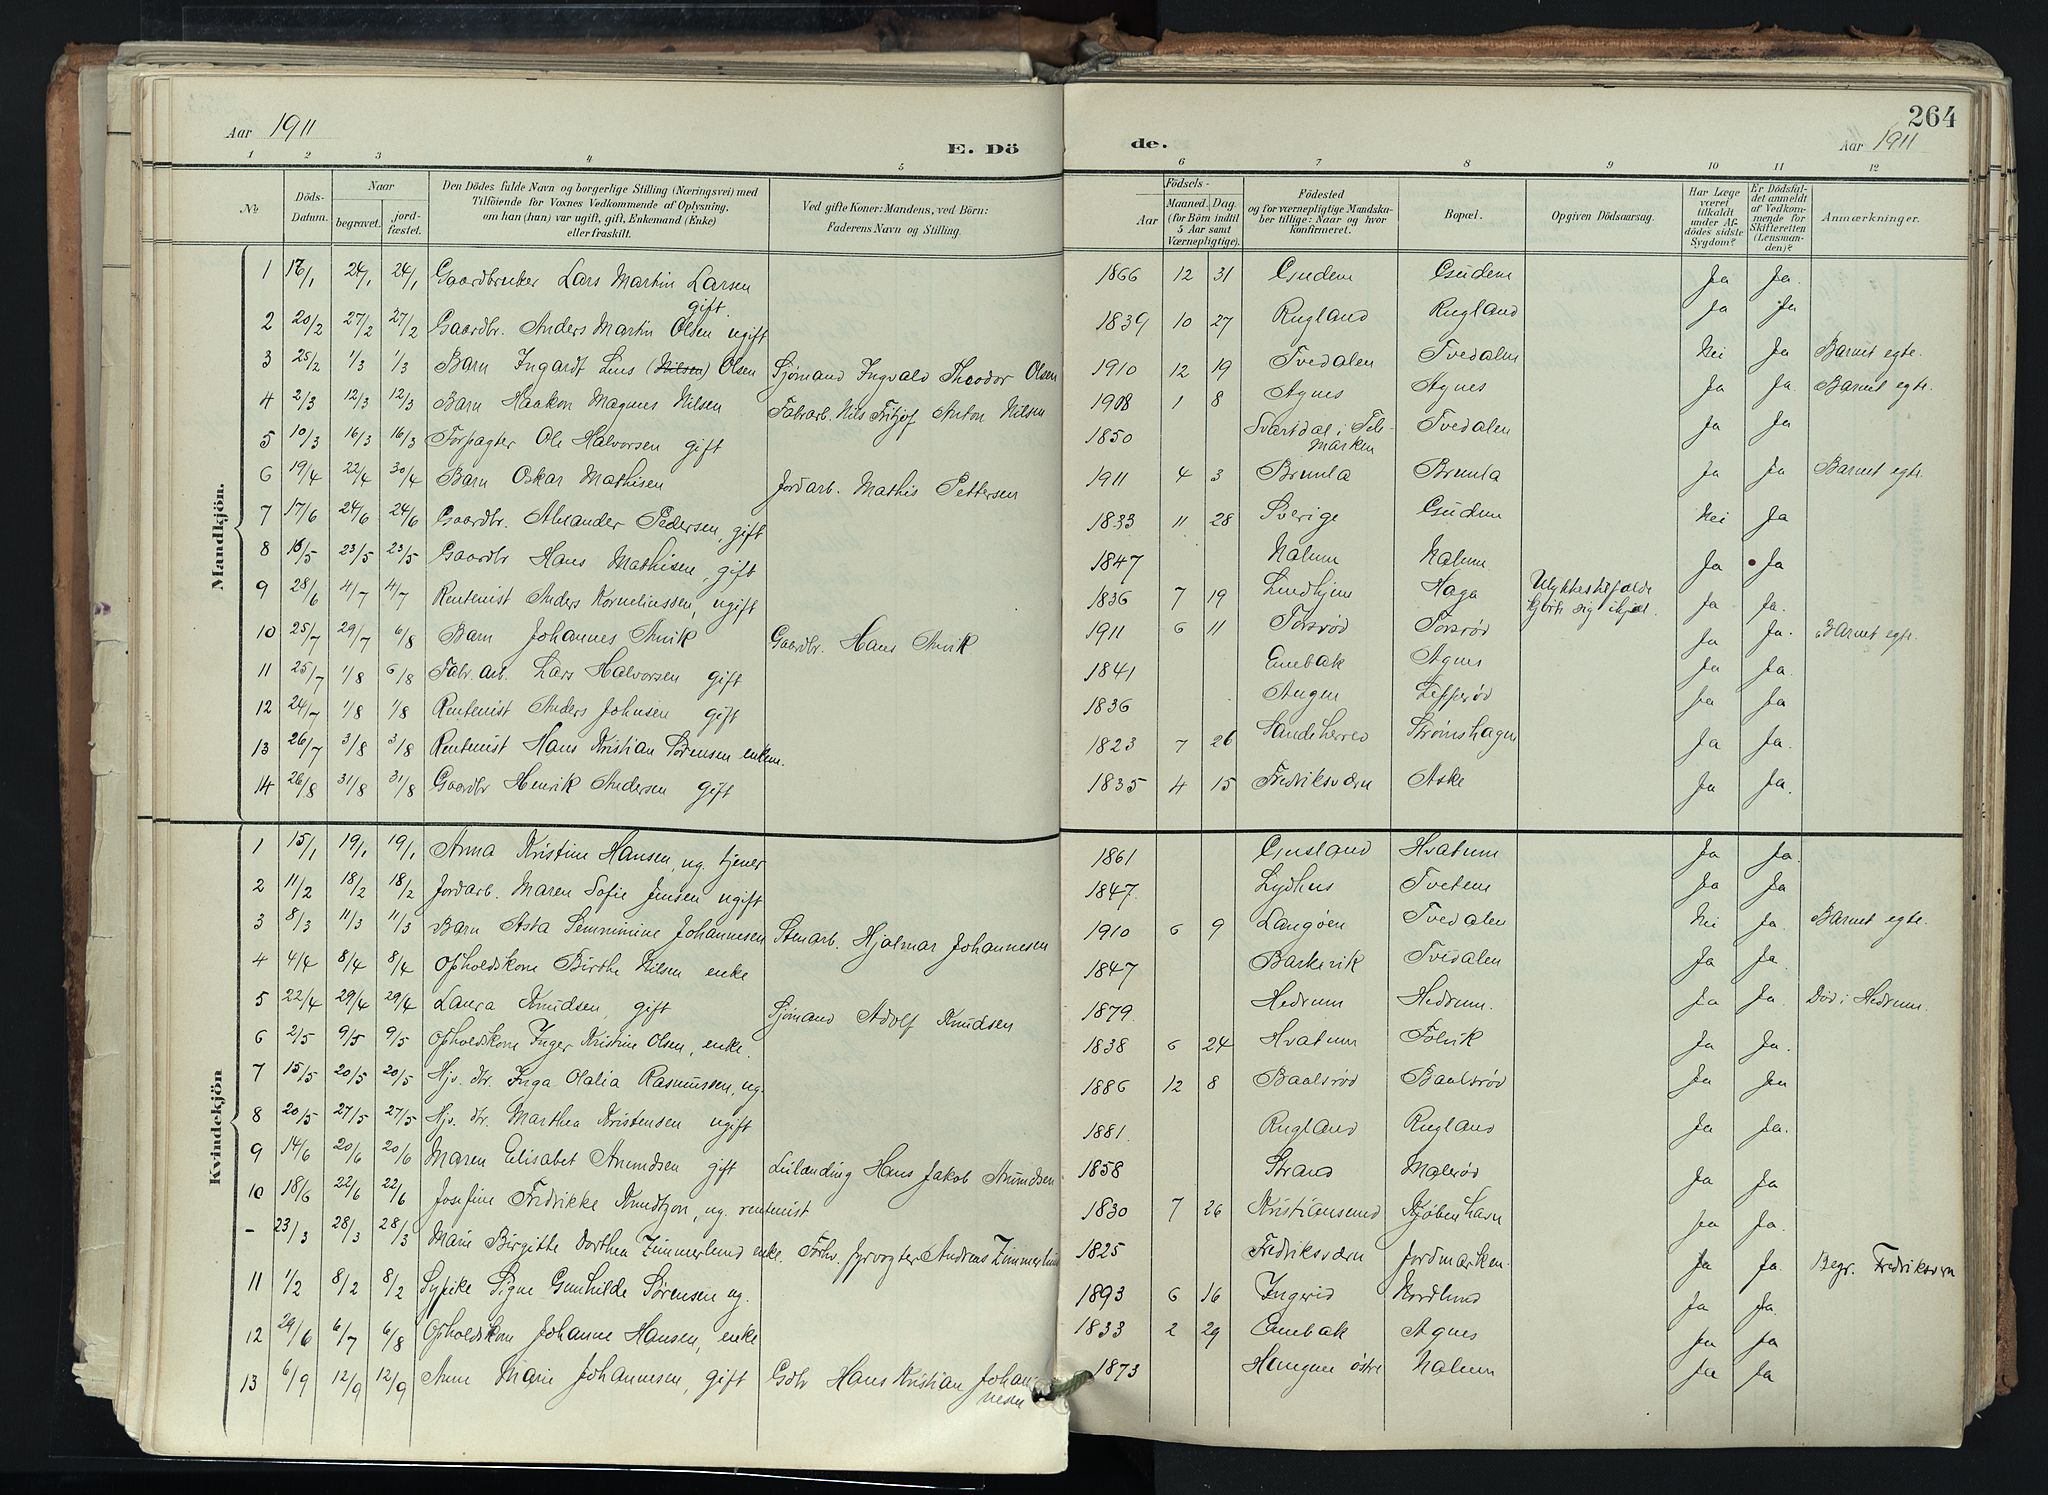 Aar 1911
E. Dö
de.
264
Aar 1911
1 2 3 4 5 6 7 8 9 10 11 12
№
Döds-Datum.
Naar
begravet.
jord-fæstet.
Den Dödes fulde Navn og borgerlige Stilling (Næringsvei) med
Tilföiende for Voxnes Vedkommende af Oplysning,
om han (hun) var ugift, gift, Enkemand (Enke)
eller fraskilt.
Ved gifte Koner: Mandens, ved Börn:
Faderens Navn og Stilling.
Födsels-
Aar
Maaned. Dag.
(for Börn indtil
5 Aar samt
Værnepligtige).
Födested
og for værnepligtige Mandska-
ber tillige: Naar og hvor
konfirmeret.
Bopæl.
Opgiven Dödsaarsag.
Har Læge
været
tilkaldt
under Af-
dödes sidste
Sygdom?
Er Dödsfal-
det anmeldt
af Vedkom-
mende for
Skifteretten
(Lensman-
den)?
Anmærkninger.
Mandkjön.
1 24/1 24/1 Gaardbruker Lars Martin Larsen gift. 1866 12 31 Ja Ja.
2 20/2 27/2 27/2 Gaardbr. Anders Martin Olsen ugift 1839 10 27 Rugland Rugland Ja Ja
3 25/2 1/3 1/3 Barn Ingardt Lius (Nilsen) Olsen Sjømand Ingvald Theodor Olsen 1910 12 19 Tvedalen Tvedalen Nei Ja Barnet egte.
4 2/3 12/3 12/3 Barn Haakon Magnus Nilsen Fabrarb. Nils Fritjof Anton Nilsen 1908 1 8 Agnes Agnes Ja Ja. Barnet egte.
5 10/3 16/3 16/3 Forpagter Ole Halvorsen gift 1850 Svartdal i Tele-
marken Tvedalen Ja Ja
6 19/4 22/4 30/4 Barn Oskar Mathisen Jordarb. Mathis Pettersen 1911 4 3 Brunla Brunla Ja Ja Barnet egte.
7 17/6 24/6 24/6 Gaardbr. Alexander Pedersen, gift 1833 11 28 Sverige Nei Ja
8 23/5 23/5 Gaardbr Hans Mathisen, gift 1847 Nalum Nalum Ja Ja
9 28/6 4/7 4/7 Rentenist Anders Korneliussen, ugift 1836 7 19 Lindhjem Haga Ulykkestilfælde
kjørte sig ihjel. Ja Ja.
10 25/7 29/7 6/8 Barn Johannes Anvik Gaardbr. Hans Anvik 1911 6 11 Torsrød Torsrød Ja Ja. Barnet egte.
11 25/7 1/8 6/8 Fabr. arb. Lars Halvorsen gift 1841 Enebak Agnes Ja Ja.
12 24/7 1/8 1/8 Rentenist Anders Johnsen gift 1836 Ja Ja
13 26/7 3/8 3/8 Rentenist Hans Kristian Sørensen enkem. 1823 7 26 Sandeherred Strømshagen Ja Ja.
14 26/8 31/8 31/8 Gaardbr Henrik Andersen gift 1835 4 15 Fredriksværn Aske Ja Ja.
Kvindekjön
1 15/1 19/1 19/1 Anna Kristine Hansen, ug. tjener 1861 Gusland Hvatum Ja Ja.
2 11/2 18/2 18/2 Jordarb. Maren Sofie Jensen ugift 1847. Lydhus Tveten Ja Ja
3 8/3 11/3 11/3 Barn Asta Semmine Johannesen Stenarb. Hjalmar Johannesen 1910 6 9 Langøen Tvedalen Nei Ja. Barnet egte.
4 4/4 8/4 8/4 Opholdskone Birthe Nilsen enke 1847 Barkevik Tvedalen Ja Ja.
5 22/4 29/4 29/4 Laura Knudsen, gift Sjømand Adolf Knudsen 1879. Hedrum Hedrum. Ja Ja. Død i Hedrum.
6 2/5 9/5 9/5 Opholdskone Inger Kristine Olsen, enke. 1838 6 24 Hvatum Folvik Ja Ja.
7 15/5 20/5 20/5 Hjv. dtr. Inga Olalia Rasmussen, ug. 1886 12 8 Baalsrød Baalsrød Ja Ja
8 20/5 27/5 27/5 Hjv. dtr. Marthea Kristensen ugift 1881. Rugland Rugland Ja Ja.
9 14/6 20/6 20/6 Maren Elisabet Amundsen gift Leilænding Hans Jakob Amundsen 1858 Strand Malerød Ja Ja
10 18/6 22/6 22/6 Josefine Fredrikke Knudtzon, ug. rentenist 1830 7 26 Kristiansund Kjøbenhavn Ja Ja.
- 23/3 28/3 28/3 Marie Birgitte Dorthea Zimmerlund enke. Forhv. fyrvogter Andreas Zimmerlund 1825 Fredriksværn Jordmarken. Ja Ja. Begr. Fredriksvern
11 1/2 8/2 8/2 Sypike Signe Gunhilde Sørensen ug. 1893 6 16 Ingerid Nordlund Ja Ja.
12 29/6 6/7 6/8 Opholdskone Johanne Hansen, enke 1833 2 29 Enebak Agnes Ja Ja
13 6/9 12/9 12/9 Anne Marie Johannesen, gift Gdbr Hans Kristian Johan-
nesen 1873 østre Nalum Ja Ja